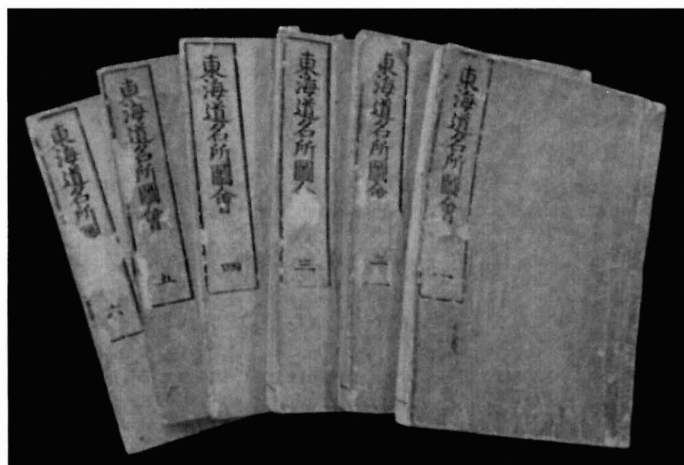 東海道名所圖會 一
東海道名所圖會 二
東海道名所圖會 三
東海道名所圖會 四
東海道名所圖會 五
東海道名所圖 六